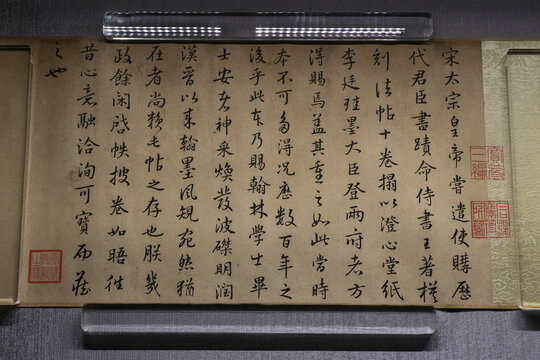 宋太宗皇帝嘗遣使購歷
代君臣書蹟命侍書王著模
刻法帖十卷搨以澄心堂紙
李廷珪墨大臣登兩府者方
得賜焉蓋其重之如此當時
本不可多得況歷數百年之
後乎此本乃賜翰林學士畢
士安者神采煥發波磔明潤
漢晉以來翰墨風規宛然猶
在者尚賴是帖之存也朕幾
政餘閑啟帙披卷如晤往
昔心意融洽洵可寶而藏
之也